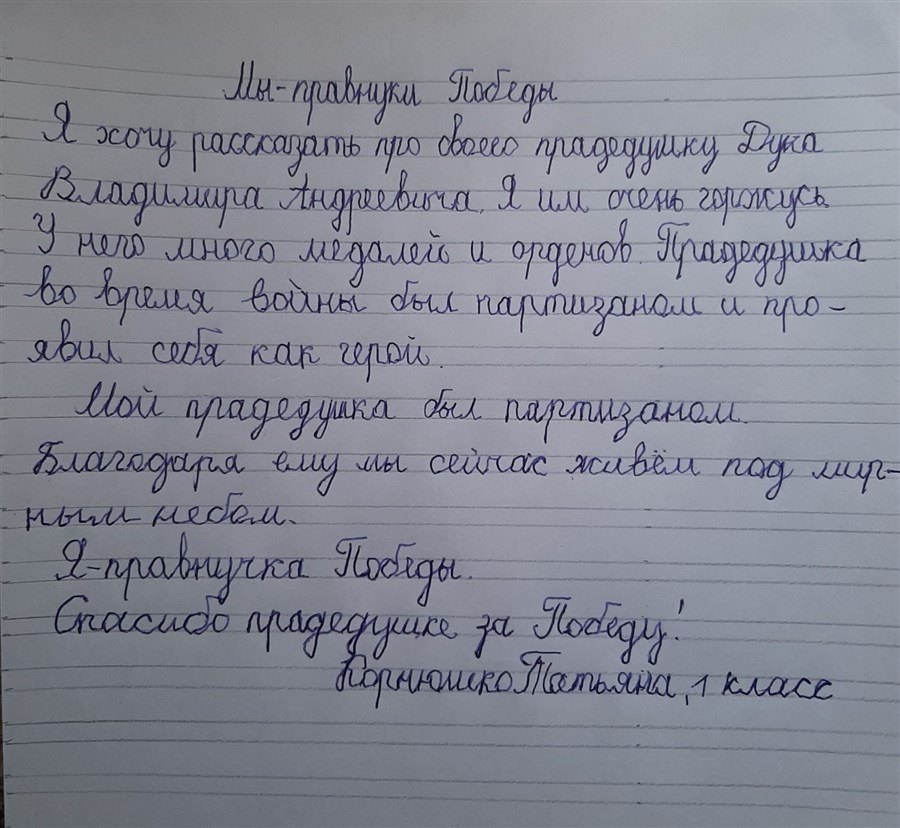 Мы-правнуки Победы
Я хочу рассказать про своего прадедушку Дука
Владимира Андреевича. Я им очень горжусь.
У него много медалей и орденов. Прадедушка
во время войны был партизаном и про-
явил себя как герой.
Мой прадедушка был партизаном.
Благодаря ему мы сейчас живём под мир-
ным небом.
Я-правнучка Победы.
Спасибо прадедушке за Победу!
Корнюшко Татьяна, 1 класс